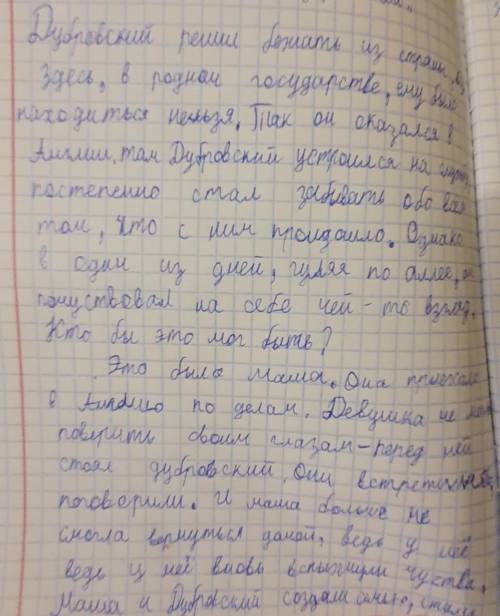 Дубровский решил бежать из страны,
здесь, в родном государстве, ему было
находиться нельзя. Так он оказался в
Англии, там Дубровский устроился на
постепенно стал забывать обо всём
том, что с ним произошло. Однако
в один из дней, гуляя по аллее, он
почуствовал на себе чей-то взгляд.
Кто бы это мог быть?
Это была маша. Она приехала
в Англию по делам. Девушка не могла
поверить своим глазам-перед ней
стоял дубровский. Они встретились
поговорили. И маша больше не
смогла вернуться домой, ведь у неё
ведь у неё вновь вспыхнули чуства.
Маша и Дубровский создали семью, стали